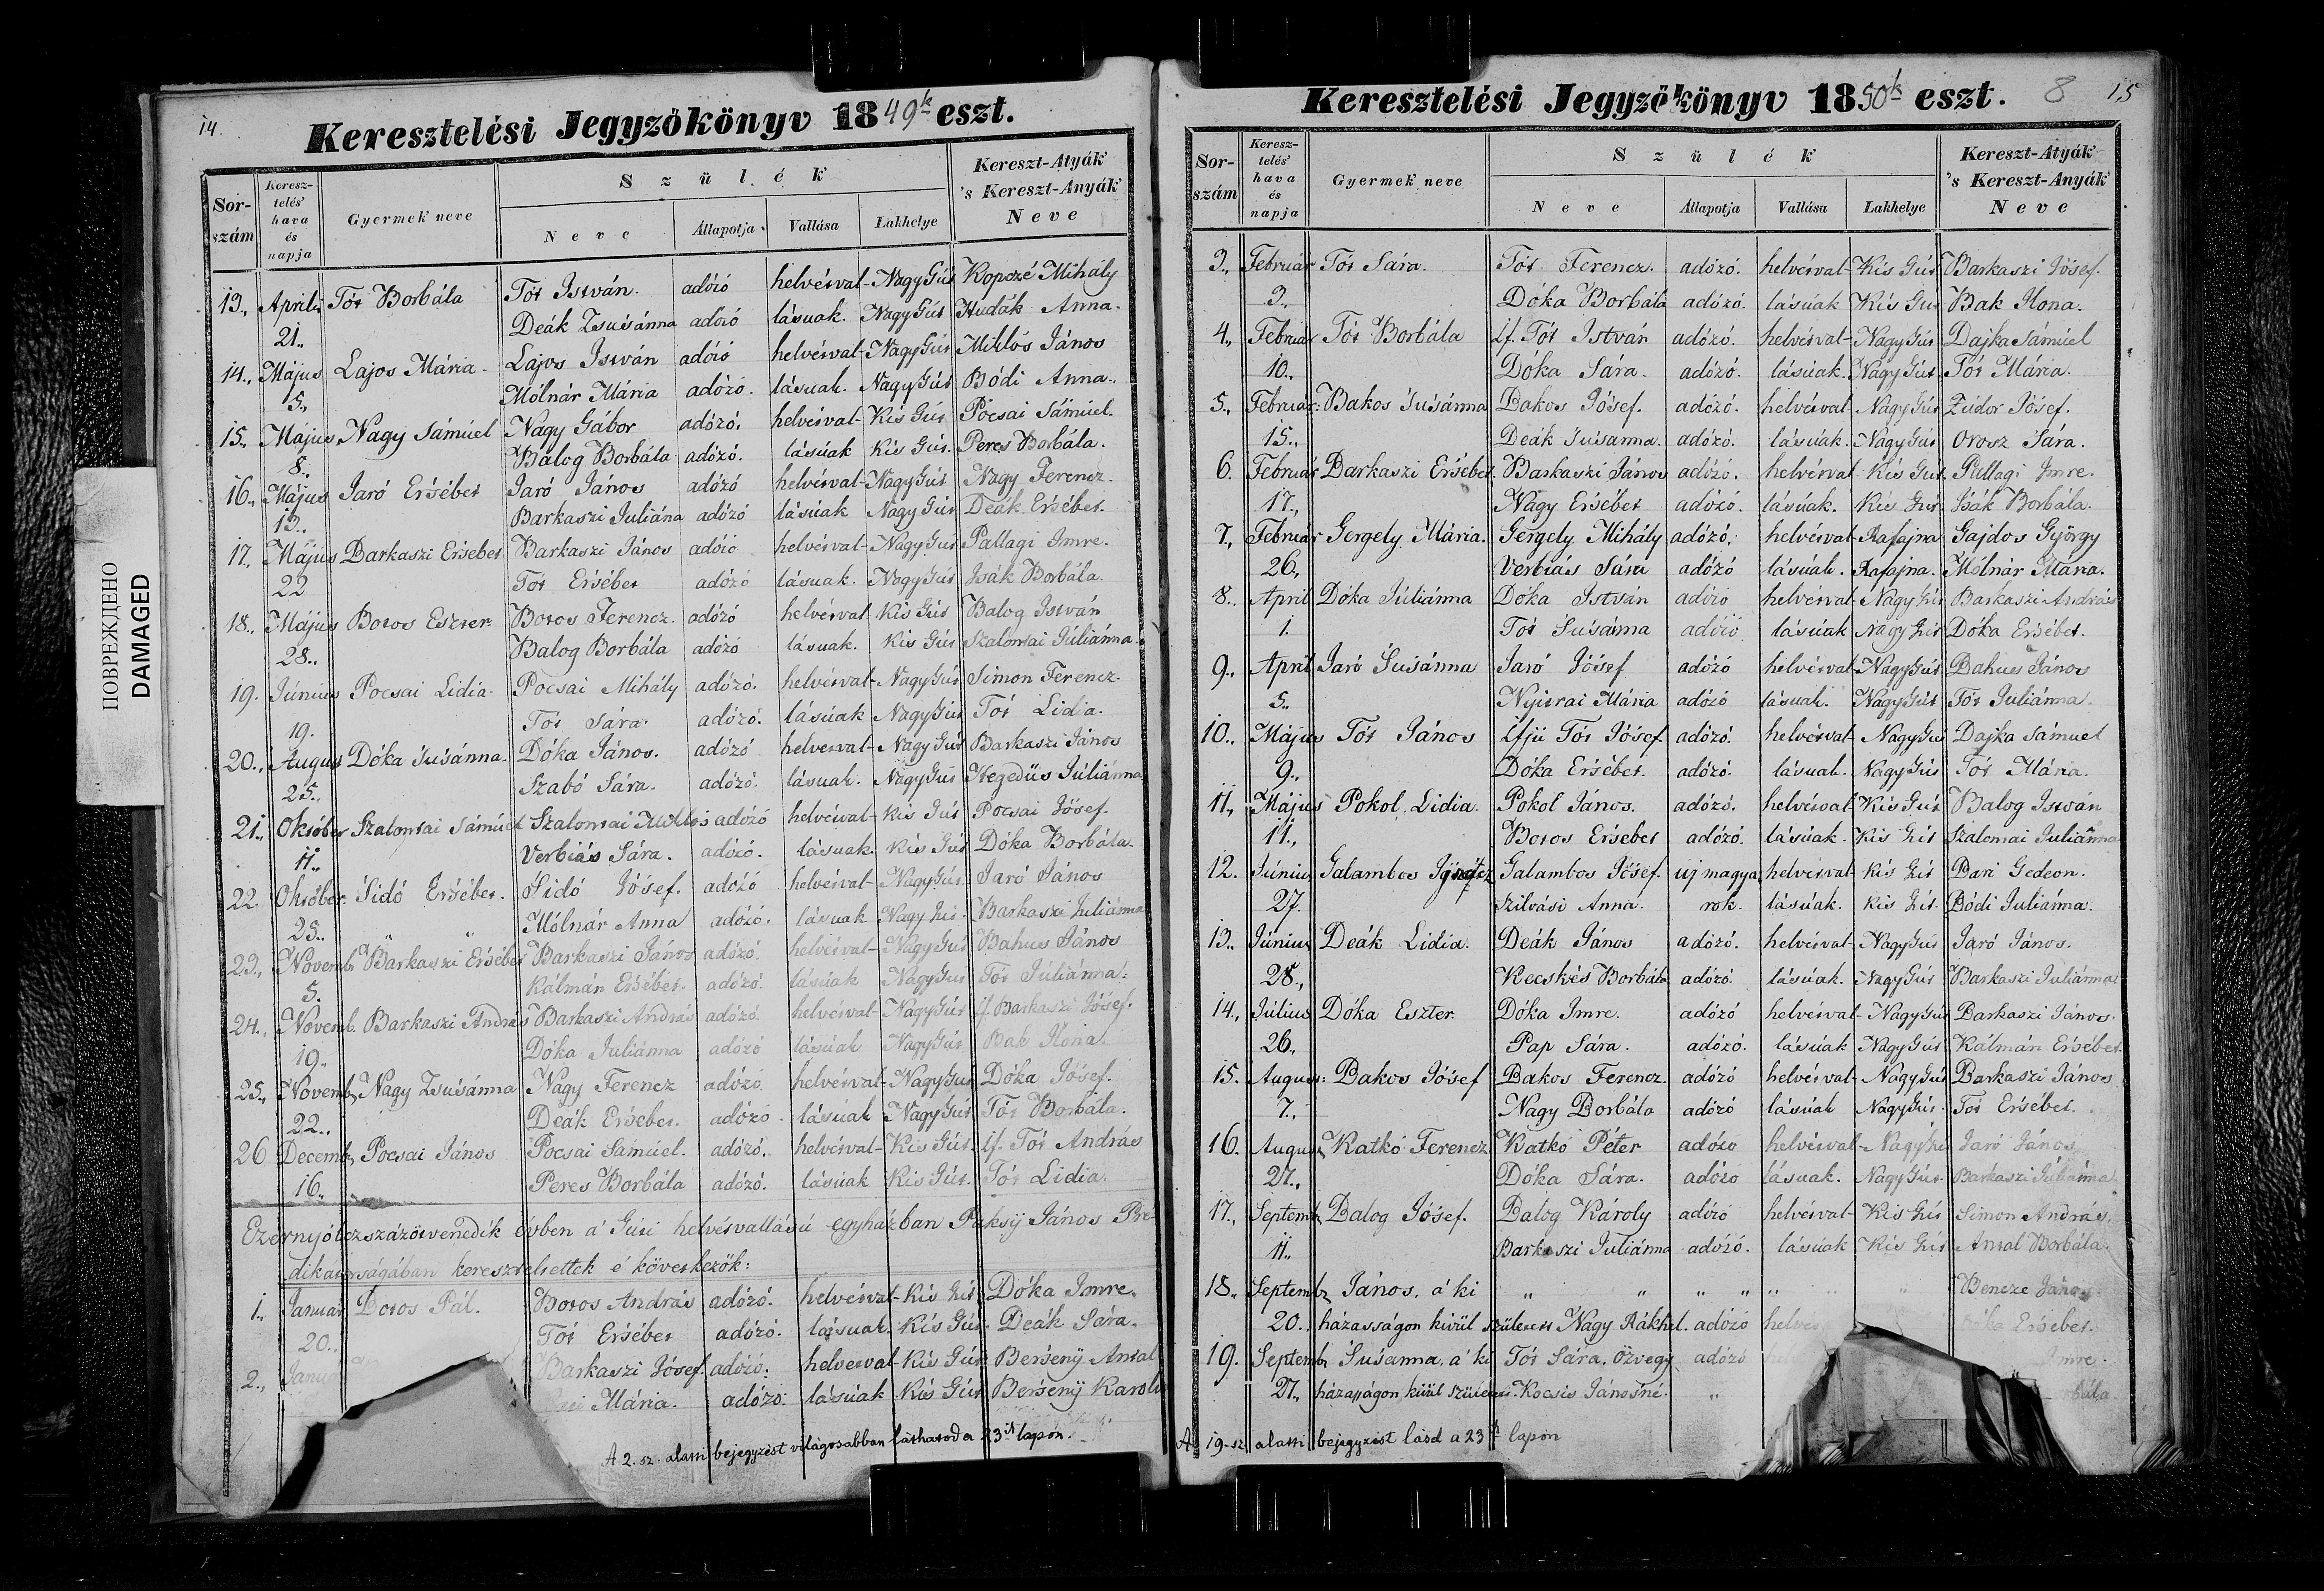 14.
Keresztelési Jegyzőkönyv 1849k eszt.
Sor-szám | Keresz-telés' hava és napja | Gyermek neve | Szülék | Kereszt-Atyák 's Kereszt-Anyák Neve
Neve | Állapotja | Vallása | Lakhelye
13., Aprilis Tót Borbála Tót István. adózó helvétval- Nagy Gút Kopczé Mihály
21., Deák Zsusánna adózó lásuak. Nagy Gút Hudák Anna.
14., Május Lajos Mária. Lajos István adózó helvétval- Nagy Gút Miklós János
5., Mólnár Mária adózó. lásuak. Nagy Gút Bódi Anna.
15., Május Nagy Sámúel Nagy Gábor adózó. helvétval- Kis Gút Pócsai Sámúel.
8., Balog Borbála adózó. lásúak Kis Gút. Peres Borbála.
16., Május Jaró Ersébet Jaró János adózó helvétval- Nagy Gút Nagy Ferencz.
13., Barkaszi Juliána adózó lásúak Nagy Gút Deák Ersébet.
17., Május Barkaszi Ersebet Barkaszi János adózó helvétval- Nagy Gút Pallagi Imre.
22 Tót Ersébet adózó lásuak. Nagy Gút Isák Borbála.
18., Május Botos Eszter Botos Ferencz. adózó helvétval Kis Gút Balog István
28., Balog Borbála adózó lásuak. Kis Gút Szalontai Júliánna.
19. Június Pocsai Lidia. Pocsai Mihály adózó. helvétval- Nagy Gút Simon Ferencz.
19. Tót Sára. adózó. lásúak Nagy Gút Tót Lidia.
20., August Dóka Susánna. Dóka János. adózó helvétval- Nagy Gút Barkaszi János
25., Szabó Sára. adózó. lásuak. Nagy Gút Hegedüs Júliánna
21., Október Szalontai Sámúel Szalontai Miklós adózó helvétval- Kis Gút Pocsai Jósef.
11., Verbiás Sára. adózó. lásuak. Kis Gút Dóka Borbála.
22. Október. Sidó Ersébet. Sidó Jósef. adózó helvétval- Nagy Gút. Jaró János
25., „ „ Mólnár Anna adózó. lásuak Nagy Gút. Barkaszi Juliánna
23., Novemb. Barkaszi Ersébet Barkaszi János adózó. helvétval- Nagy Gút Bahus János
5. Kálmán Ersébet. adózó. lásúak Nagy Gut Tót Júliánna.
24., Novemb. Barkaszi András Barkaszi András adózó. helvétval- Nagy Gút if. Barkaszi Jósef.
19. Dóka Juliánna adózó lásúak Nagy Gút Bak Ilona.
25., Novemb. Nagy Zsusánna Nagy Ferencz adózó. helvétval- Nagy Gut Dóka Jósef.
22., Deák Ersébet. adózó. lásúak Nagy Gút Tót Borbála.
26 Decemb. Pocsai János Pocsai Sámúel. adózó. helvétval- Kis Gút. if. Tót András
16., Peres Borbála adózó. lásúak Kis Gút. Tót Lidia.
Ezernyólczszázötvenedik évben a' Guti helvétvallású egyházban Paksÿ János Pre-
dikatorságában kereszteltettek é következők:
1., Január. Botos Pál. Botos András adózó. helvétval- Kis Gút Dóka Imre.
20., Tót Ersébet adózó. lásuak. Kis Gút. Deák Sára.
2., Janu Barkaszi Jósef. adózó. helvetval- Kis Gút Bersenÿ Antal
Mária. adózó. lásúak Kis Gút Bersenÿ Karol
A 2. sz. alatti bejegyzést világosabban láthatod a 23ik lapon.
Keresztelési Jegyzőkönyv 1850k eszt. 8 15
Sor-szám | Keresz-telés' hava és napja | Gyermek neve | Szülék | Kereszt-Atyák 's Kereszt-Anyák Neve
Neve | Állapotja | Vallása | Lakhelye
3., Február Tót Sára. Tót Ferencz. adózó. helvétval- Kis Gút Barkaszi Jósef.
3., Dóka Borbála adózó. lásúak Kis Gut Bak Ilona.
4., Február Tót Borbála if. Tót István adózó. helvétval- Nagy Gút Dajka Sámúel
10., Dóka Sára. adózó. lásúak. Nagy Gút. Tót Mária.
5., Február: Bakos Susánna Bakos Jósef. adózó. helvétval Nagy Gút Zúdor Jósef.
15., Deák Susanna. adózó. lásúak. Nagy Gút Orosz Sára.
6. Február Barkaszi Ersébet. Barkaszi János adózó. helvétval- Kis Gút. Pallagi Imre.
17., Nagy Ersébet adózó. lásúak. Kis Gút. Isák Borbála.
7., Február Gergely Mária. Gergely Mihály adózó. helvétval- Rafajna Gajdos György
26., Verbiás Sára adózó lásúak. Rafajna. Mólnár Mária.
8., April Dóka Júliánna Dóka István adózó helvetval- Nagy Gút Barkaszi András
1. Tót Susánna adózó. lásúak Nagy Gút Dóka Ersébet.
9., April Jaró Susánna Jaró Jósef adózó helvétval- Nagy Gút Bahus János
5., Nyitrai Mária adózó lásuak. Nagy Gút Tót Juliánna.
10., Május Tót János ifjú Tót Jósef. adózó. helvétval- Nagy Gu Dajka Sámuel
9., Dóka Ersébet. adózó. lásuak. Nagy Gút Tót Mária.
11., Május Pokol Lidia. Pokol János. adózó. helvétval- Kis Gút Balog István
11., Botos Ersebet adózó. lásúak. Kis Gút Szalontai Juliánna
12. Június Galambos Ignátz Galambos Jósef. új magya helvétval Kis Gút Pari Gedeon.
27. Szilvási Anna. rok. lásúak. Kis Gút. Bódi Juliánna.
13., Június Deák Lidia. Deák János adózó. helvétval- Nagy Gút Jaró János.
28., Kecskés Borbála adózó. lásúak. Nagy Gút Barkaszi Juliánna
14., Július Dóka Eszter. Dóka Imre. adózó helvétval- Nagy Gút Barkaszi János.
26., Pap Sára. adózó. lásúak Nagy Gút Kálmán Ersébet.
15. August: Bakos Jósef Bakos Ferencz. adózó helvétval- Nagy Gút Barkaszi János
7., Nagy Borbála adózó lásúak Nagy Gút. Tót Ersébet.
16. August Katkó Ferencz Katkó Péter adózo helvétval- Nagy Gu Jaró János
27., Dóka Sára. adózó lásuak. Nagy Gút. Barkaszi Juliánna
17., Septemb. Balog Jósef. Balog Károly adózó helvétval- Kis Gút Simon András.
11., Barkaszi Juliánna adózó. lásúak Kis Gút Antal Borbála.
18., Septemb. János, a' ki „ „ „ „ „ „ „ Bencze János
20., házasságon kivül született Nagy Rákhel. adózó helvét Ersebet.
19. Septemb. Susanna, a' ki Tót Sára, Özvegy adózó Imre.
27., házasságon kivül született. Kocsis Jánosné. „
A 19. sz. alatti bejegyzést lásd a 23ik lapon
ПОВРЕЖДЕНО
DAMAGED